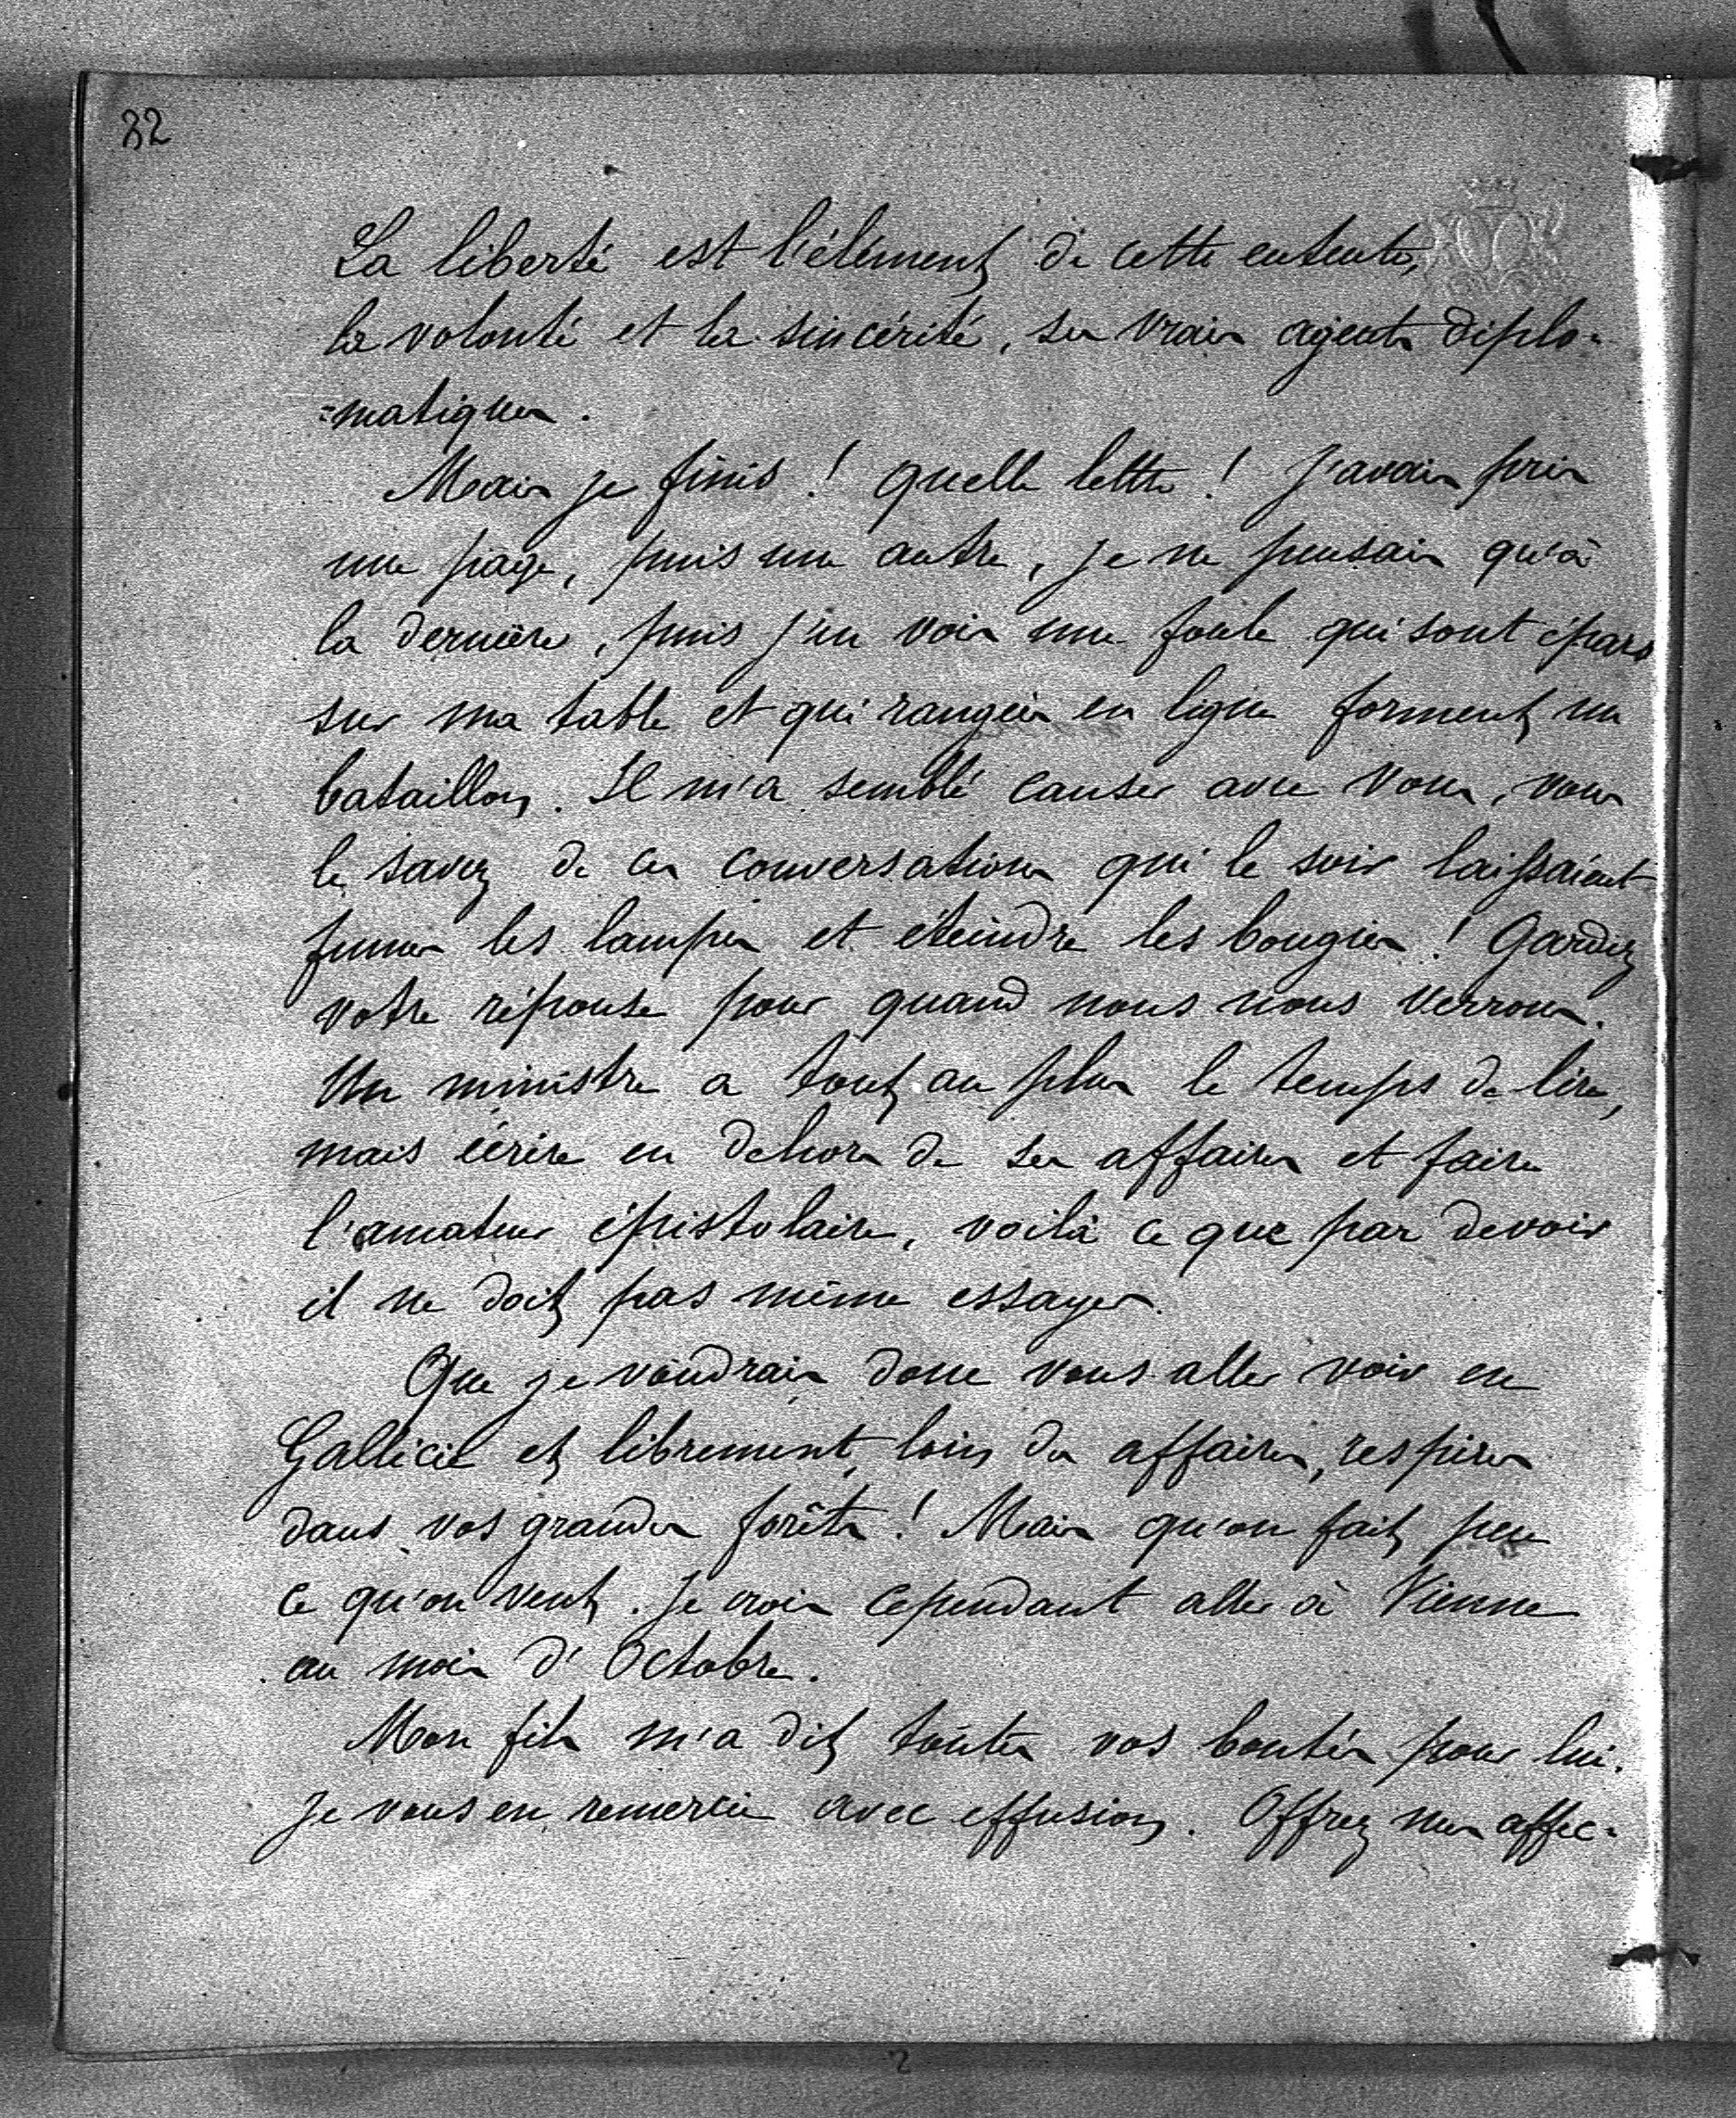 32
La liberté est l'élément de cette entente,
la volonté et la sincérité, ses vrais agents diplo-
=matiques.
Mais je finis ! quelle lettre ! J'avais pris
une page, puis une autre, je ne pensais qu'à
la dernière, puis j'en vois une foule qui sont épars
sur ma table et qui rangées en ligne forment un
bataillon. Il m'a semblé causer avec vous, vous
le savez de ces conversations qui le soir laissaient
fumer les lampes et éteindre les bougies ! Gardez
votre réponse pour quand nous nous verrons.
Un ministre a tout au plus le temps de lire,
mais écrire en dehors de ses affaires et faire
l'amateur épistolaire, voilà ce que par devoir
il ne doit pas même essayer.
Que je voudrais donc vous aller voir en
Gallicie et librement, loin des affaires, respirer
dans vos grandes forêts ! Mais qu'on fait peu
ce qu'on veut. Je crois cependant aller à Vienne
au mois d'Octobre.
Mon fils m'a dit toutes vos bontés pour lui.
Je vous en remercie avec effusion. Offrez mes affec-
2